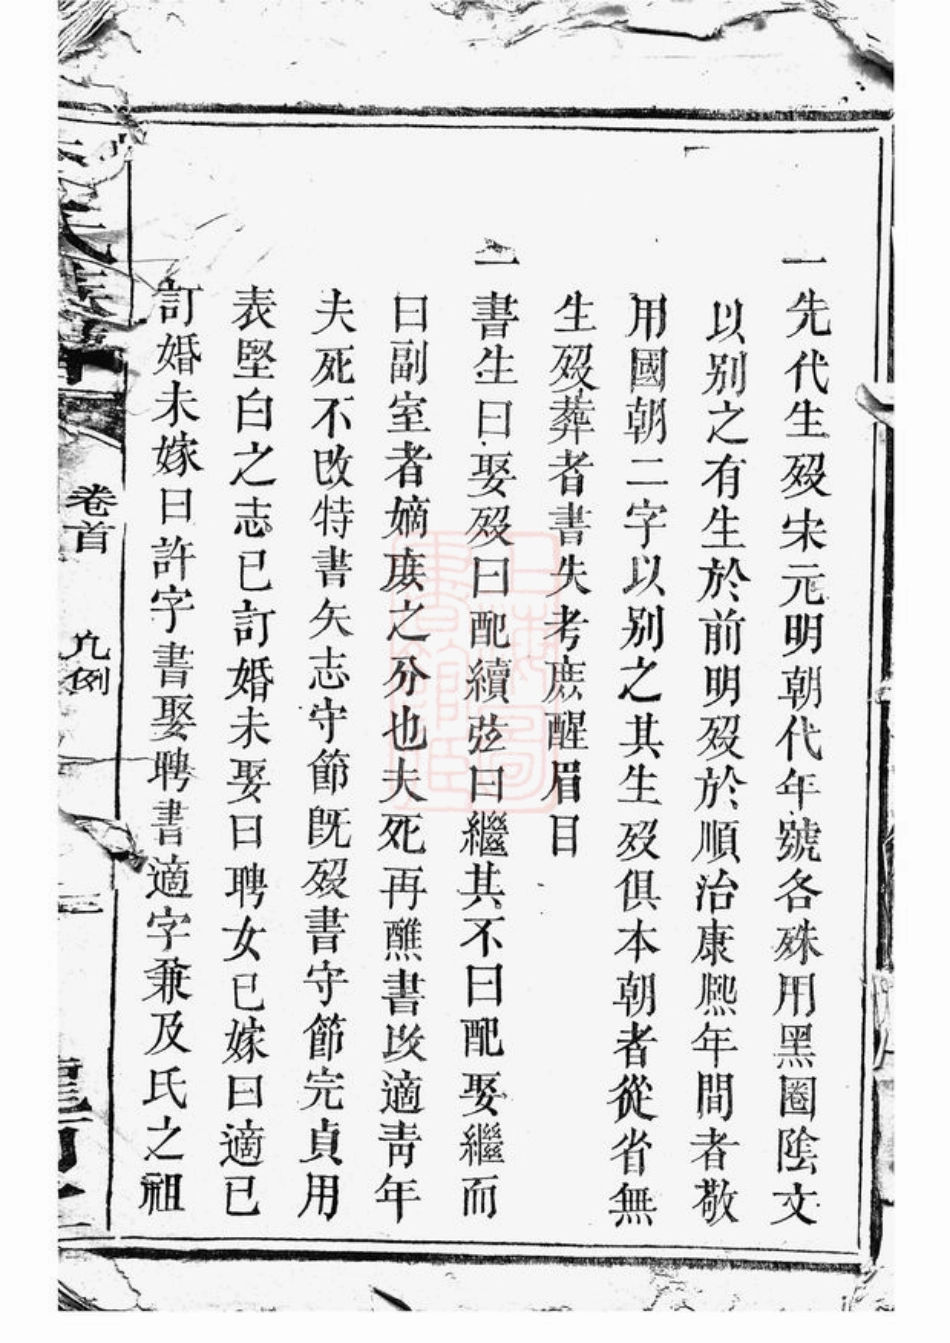 一先代生歿宋元明朝代年號各殊用黑圈陰文
以别之有生於前明歿於順治康熙年間者敬
用國朝二字以别之其生歿俱本朝者從省無
生歿葬者書失考庶醒眉目
一書生曰娶歿曰配續弦曰繼其不曰配娶繼而
曰副室者嫡庶之分也夫死再醮書改適青年
夫死不改特書矢志守節既歿書守節完貞用
表堅白之志已訂婚未娶曰聘女已嫁曰適已
訂婚未嫁曰許字書娶聘書適字兼及氏之祖
卷首
凡例
二